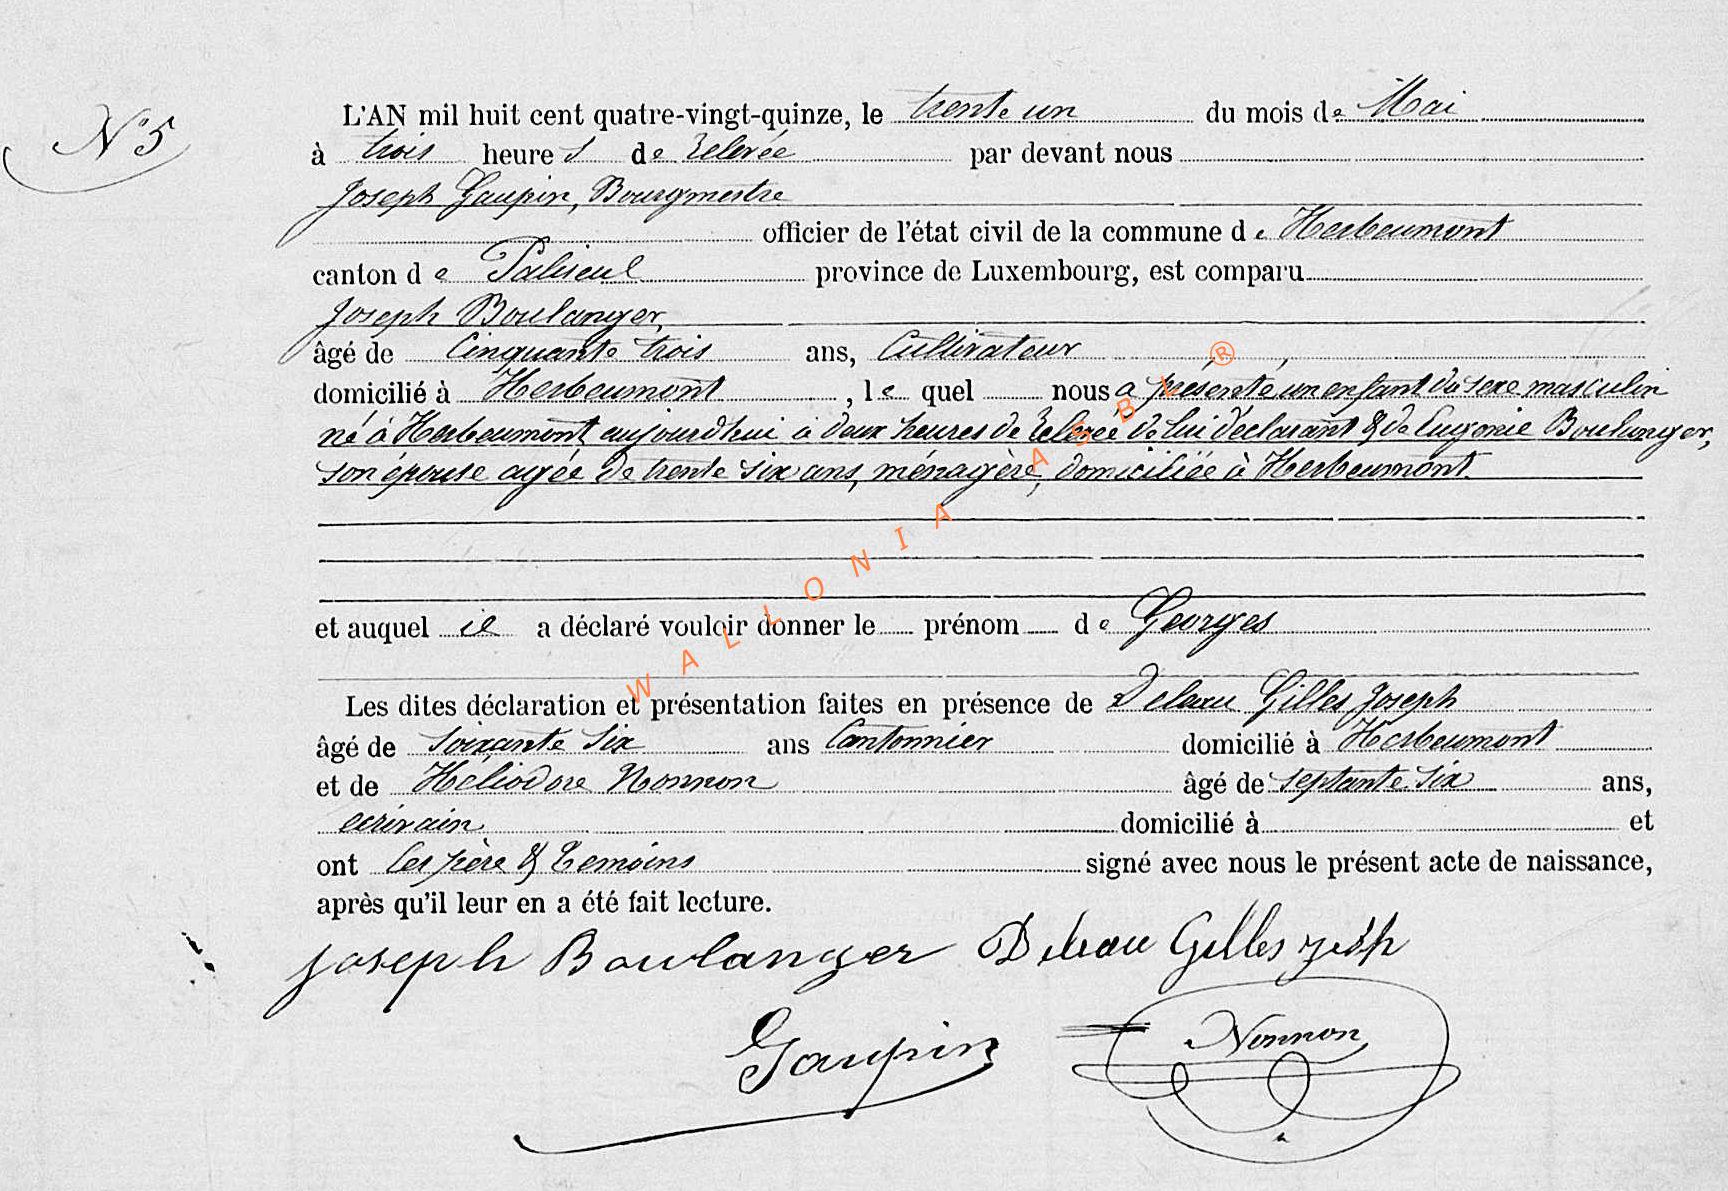 N° 5
L'AN mil huit cent quatre-vingt-quinze, le trente un du mois de Mai
à trois heures de relevée par devant nous
Joseph Gaupin, Bourgmestre
officier de l'état civil de la commune de Herbeumont
canton de Paliseul province de Luxembourg, est comparu
Joseph Boulanger,
âgé de Cinquante trois ans, Cultivateur,
domicilié à Herbeumont, lequel nous a présenté un enfant du sexe masculin
né à Herbeumont aujourdhui à deux heures de relevée de lui déclarant & de Eugenie Boulanger,
son épouse agée de trente six ans, ménagère, domiciliée à Herbeumont.
et auquel il a déclaré vouloir donner le prénom de Georges
Les dites déclaration et présentation faites en présence de Deleau Gilles Joseph
âgé de soixante six ans Cantonnier domicilié à Herbeumont
et de Héliodore Nonnon âgé de septante six ans,
écrivain domicilié à et
ont les père & témoins signé avec nous le présent acte de naissance,
après qu'il leur en a été fait lecture.
Joseph Boulanger Deleau Gilles
Gaupin Nonnon
WALLONIA ASBL ®